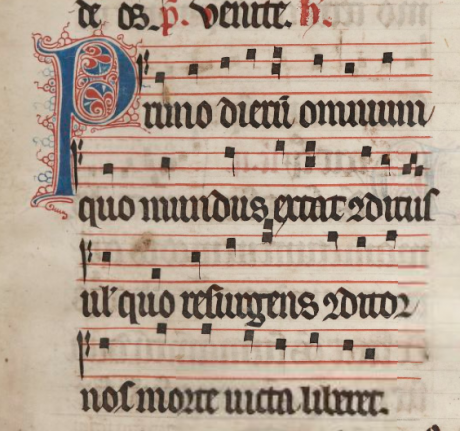 de os. p̄. Venite. h.
Primo dieru̅ omnium
quo mundus extat ꝯditus
ul' quo resurgens ꝯditor
nos morte uicta liberet.